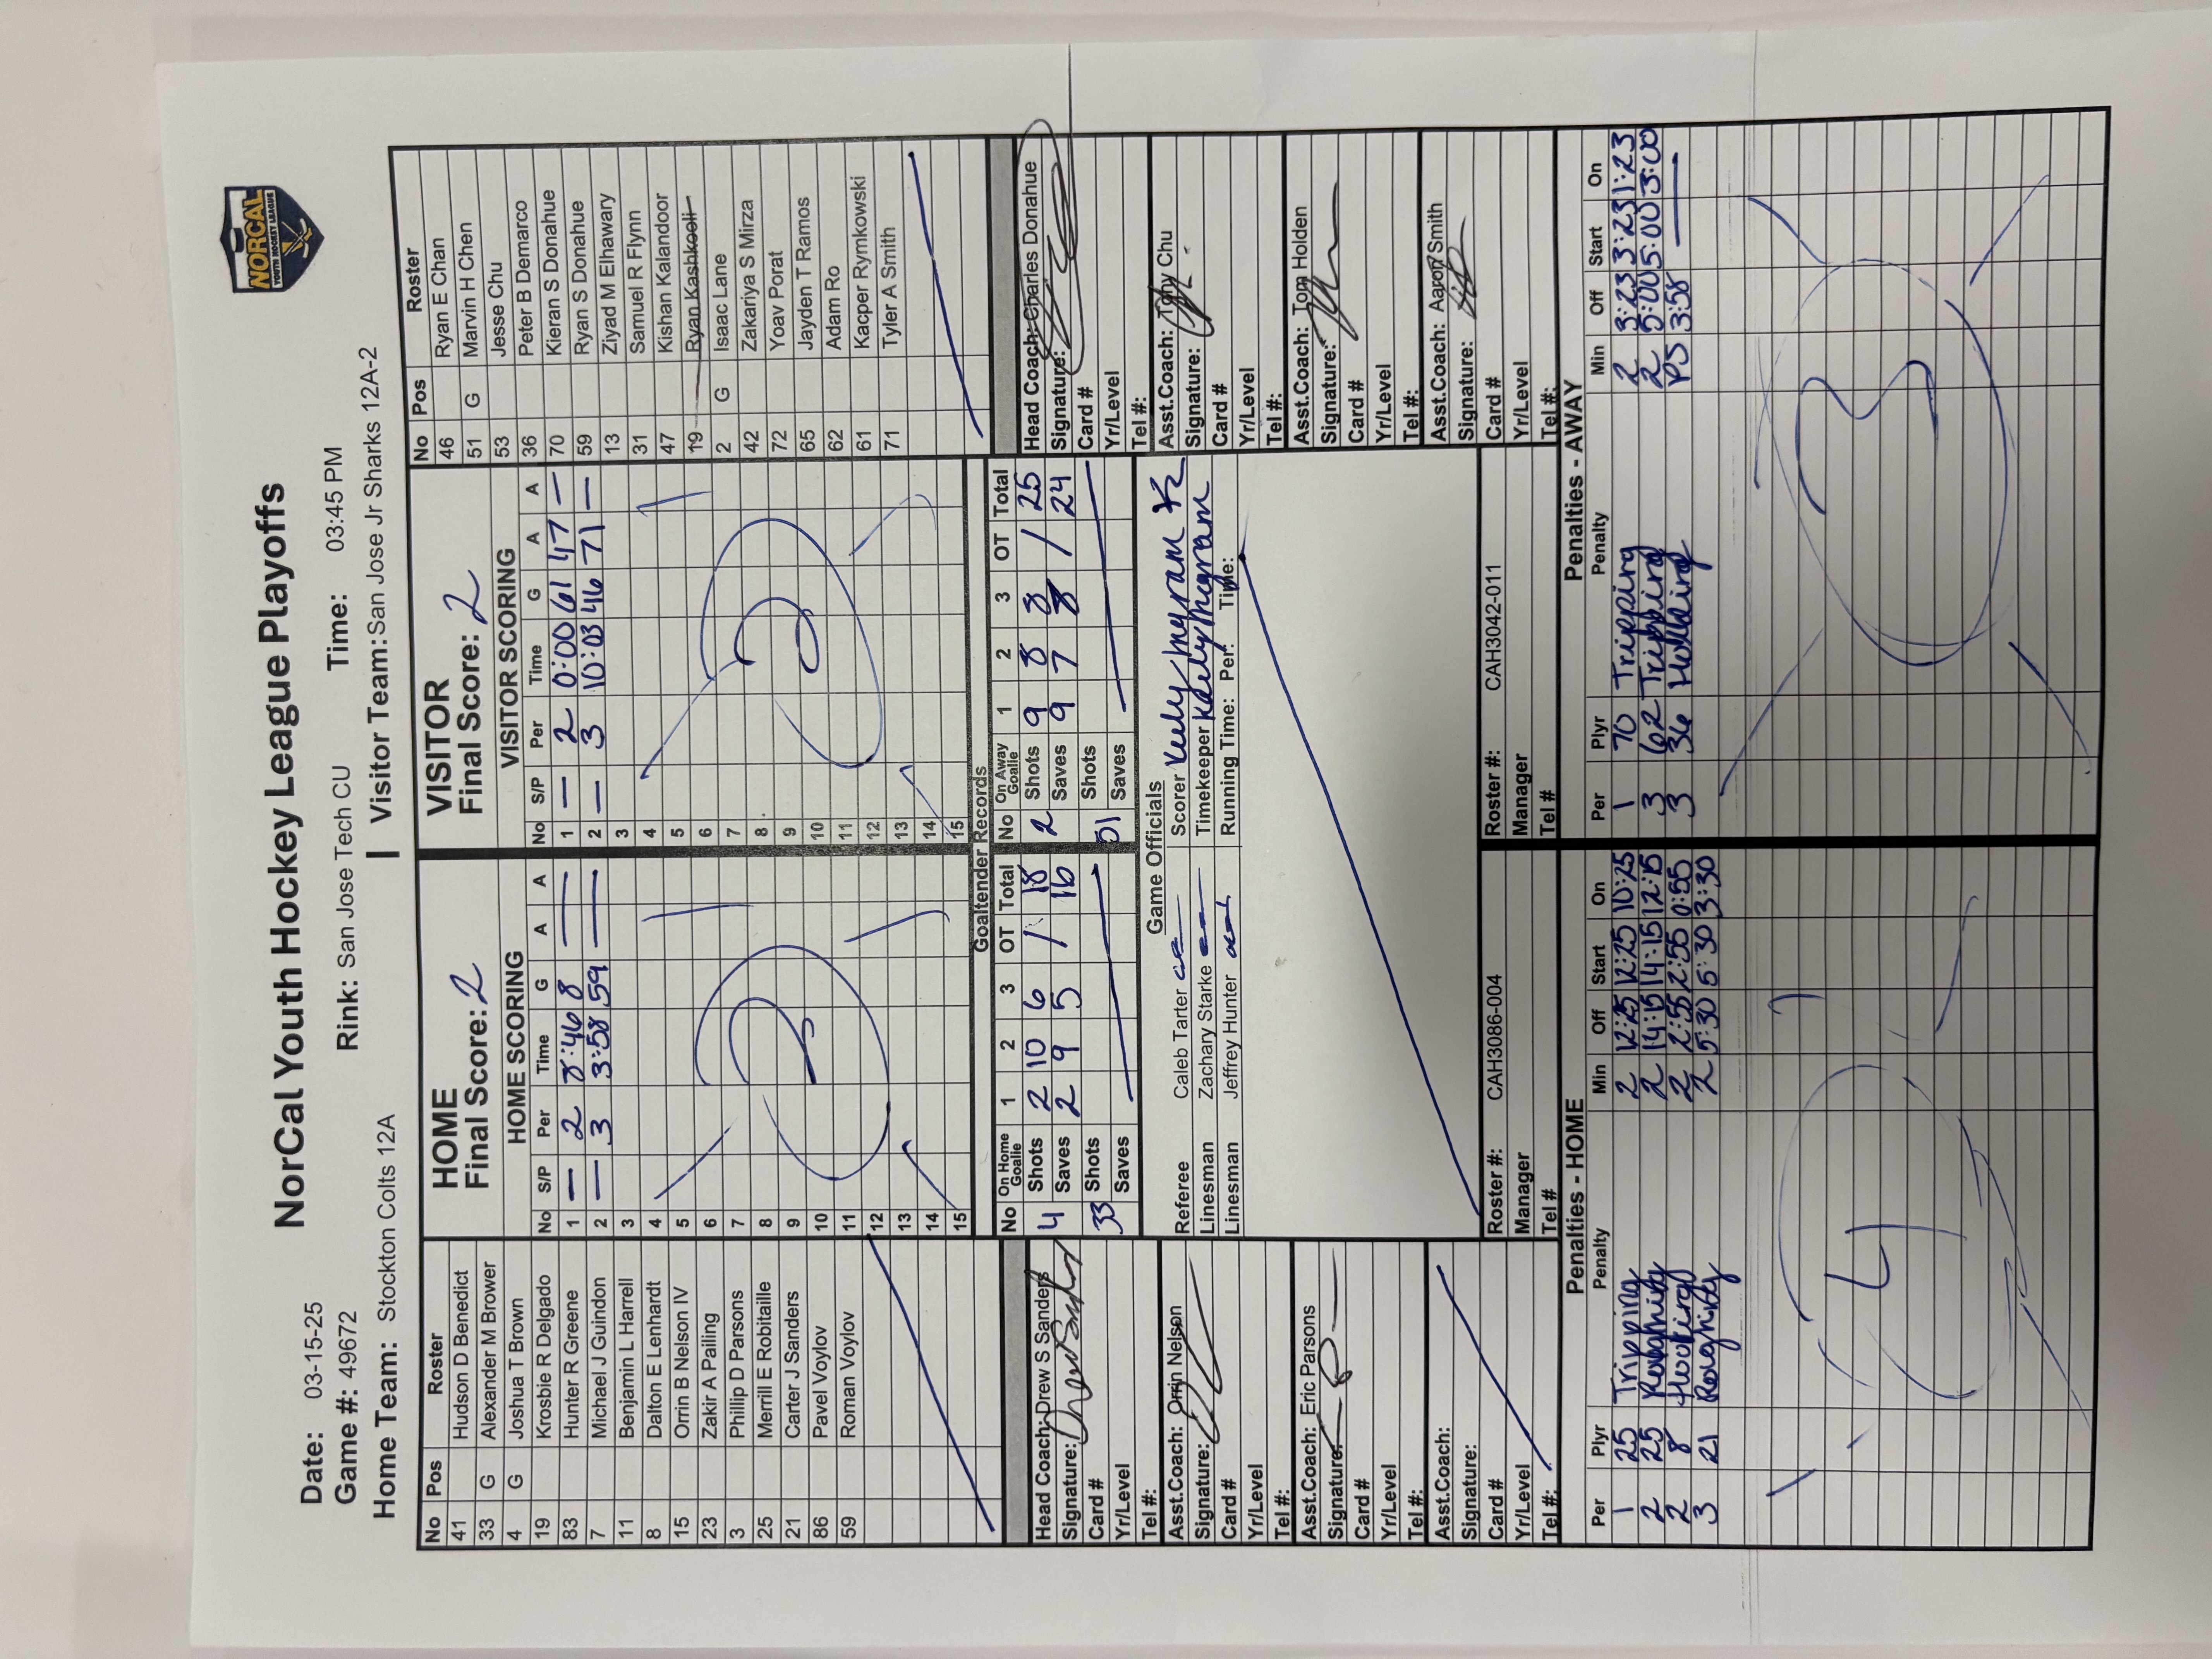 NORCAL
YOUTH HOCKEY LEAGUE
NorCal Youth Hockey League Playoffs
Date: 03-15-25
Game #: 49672 Rink: San Jose Tech CU Time: 03:45 PM
Home Team: Stockton Colts 12A | Visitor Team: San Jose Jr Sharks 12A-2
No Pos Roster
41 Hudson D Benedict
33 G Alexander M Brower
4 G Joshua T Brown
19 Krosbie R Delgado
83 Hunter R Greene
7 Michael J Guindon
11 Benjamin L Harrell
8 Dalton E Lenhardt
15 Orrin B Nelson IV
23 Zakir A Pailing
3 Phillip D Parsons
25 Merrill E Robitaille
21 Carter J Sanders
86 Pavel Voylov
59 Roman Voylov
HOME
Final Score: 2
HOME SCORING
No S/P Per Time G A A
1 — 2 8:46 8 —
2 — 3 3:58 59 —
3
4
5
6
7
8
9
10
11
12
13
14
15
2
VISITOR
Final Score: 2
VISITOR SCORING
No S/P Per Time G A A
1 — 2 0:00 61 47 —
2 — 3 10:03 46 71 —
3
4
5
6
7
8
9
10
11
12
13
14
15
2
No Pos Roster
46 Ryan E Chan
51 G Marvin H Chen
53 Jesse Chu
36 Peter B Demarco
70 Kieran S Donahue
59 Ryan S Donahue
13 Ziyad M Elhawary
31 Samuel R Flynn
47 Kishan Kalandoor
19 Ryan Kashkooli
2 G Isaac Lane
42 Zakariya S Mirza
72 Yoav Porat
65 Jayden T Ramos
62 Adam Ro
61 Kacper Rymkowski
71 Tyler A Smith
Goaltender Records
No On Home Goalie 1 2 3 OT Total
4 Shots 2 10 6 / 18
Saves 2 9 5 16
33 Shots
Saves
No On Away Goalie 1 2 3 OT Total
2 Shots 9 8 8 / 25
Saves 9 7 8 / 24
51 Shots
Saves
Head Coach: Drew S Sanders
Signature: Drew Sanders
Card #
Yr/Level
Tel #:
Asst.Coach: Orrin Nelson
Signature:
Card #
Yr/Level
Tel #:
Asst.Coach: Eric Parsons
Signature:
Card #
Yr/Level
Tel #:
Asst.Coach:
Signature:
Card #
Yr/Level
Tel #:
Game Officials
Referee Caleb Tarter
Linesman Zachary Starke
Linesman Jeffrey Hunter
Scorer Kelly
Timekeeper Kelly
Running Time: Per: Time:
Roster #: CAH3086-004
Manager
Tel #
Roster #: CAH3042-011
Manager
Tel #
Head Coach: Charles Donahue
Signature:
Card #
Yr/Level
Tel #:
Asst.Coach: Tony Chu
Signature:
Card #
Yr/Level
Tel #:
Asst.Coach: Tom Holden
Signature:
Card #
Yr/Level
Tel #:
Asst.Coach: Aaron Smith
Signature:
Card #
Yr/Level
Tel #:
Penalties - HOME
Per Plyr Penalty Min Off Start On
1 25 Tripping 2 12:25 12:25 10:25
2 25 Roughing 2 14:15 14:15 12:15
2 8 Hooking 2 2:55 2:55 0:55
3 21 Roughing 2 5:30 5:30 3:30
4
Penalties - AWAY
Per Plyr Penalty Min Off Start On
1 70 Tripping 2 3:23 3:23 1:23
3 62 Tripping 2 5:00 5:00 3:00
3 36 Holding PS 3:58 —
3